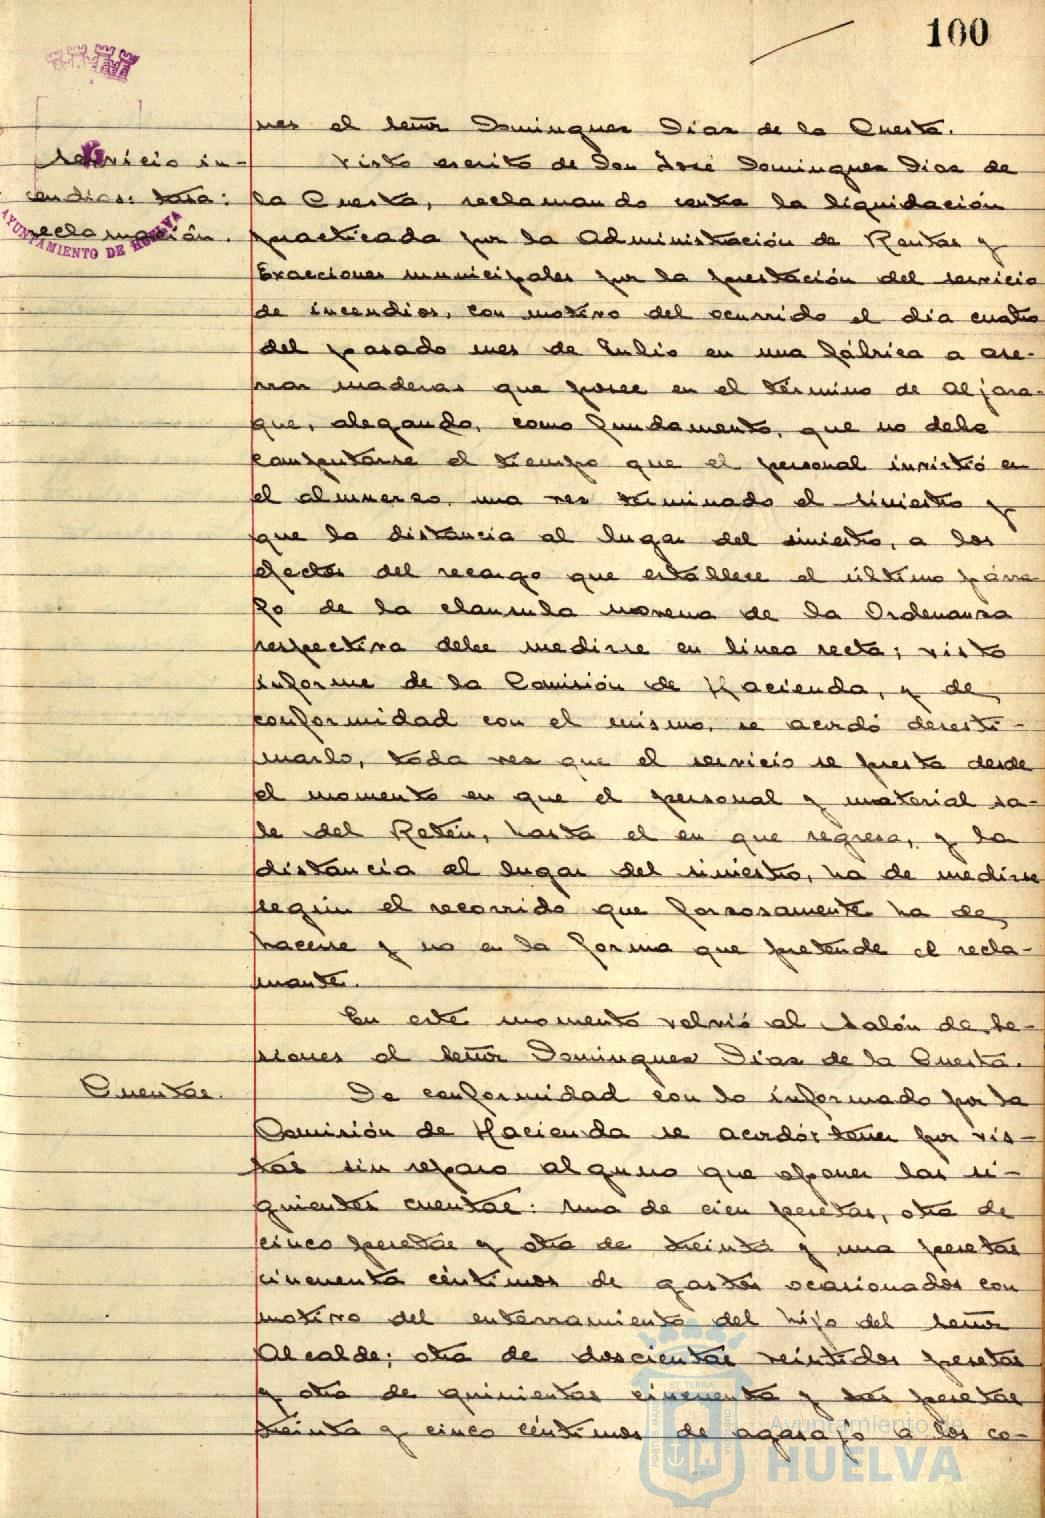 100
nes el señor Dominguez Diaz de la Cuesta.
Servicio in-
cendios: tasa:
reclamación.
AYUNTAMIENTO DE HUELVA
Visto escrito de Don José Dominguez Diaz de
la Cuesta, reclamando contra la liquidación
practicada por la Administración de Rentas y
Exacciones municipales por la prestación del servicio
de incendios, con motivo del ocurrido el dia cuatro
del pasado mes de Julio en una fábrica a ase-
rrar maderas que posee en el término de Aljara-
que, alegando, como fundamento, que no debe
computarse el tiempo que el personal invirtió en
el almuerzo, una vez terminado el siniestro y
que la distancia al lugar del siniestro, a los
efectos del recargo que establece el último párra-
fo de la clausula novena de la Ordenanza
respectiva debe medirse en linea recta; visto
informe de la Comisión de Hacienda, y de
conformidad con el mismo, se acordó desesti-
marlo, toda vez que el servicio se presta desde
el momento en que el personal y material sa-
le del Retén, hasta el en que regresa, y la
distancia al lugar del siniestro, ha de medirse
según el recorrido que forzosamente ha de
hacerse y no en la forma que pretende el recla-
mante.
En este momento volvió al salón de se-
siones el señor Dominguez Diaz de la Cuesta.
Cuentas.
De conformidad con lo informado por la
Comisión de Hacienda se acordó: tener por vis-
tas sin reparo alguno que oponer las si-
guientes cuentas: una de cien pesetas, otra de
cinco pesetas y otra de treinta y una pesetas
cincuenta céntimos de gastos ocasionados con
motivo del enterramiento del hijo del señor
Alcalde; otra de doscientas veintidos pesetas
y otra de quinientas cincuenta y tres pesetas
treinta y cinco céntimos de agasajo a los co-
Ayuntamiento de
HUELVA